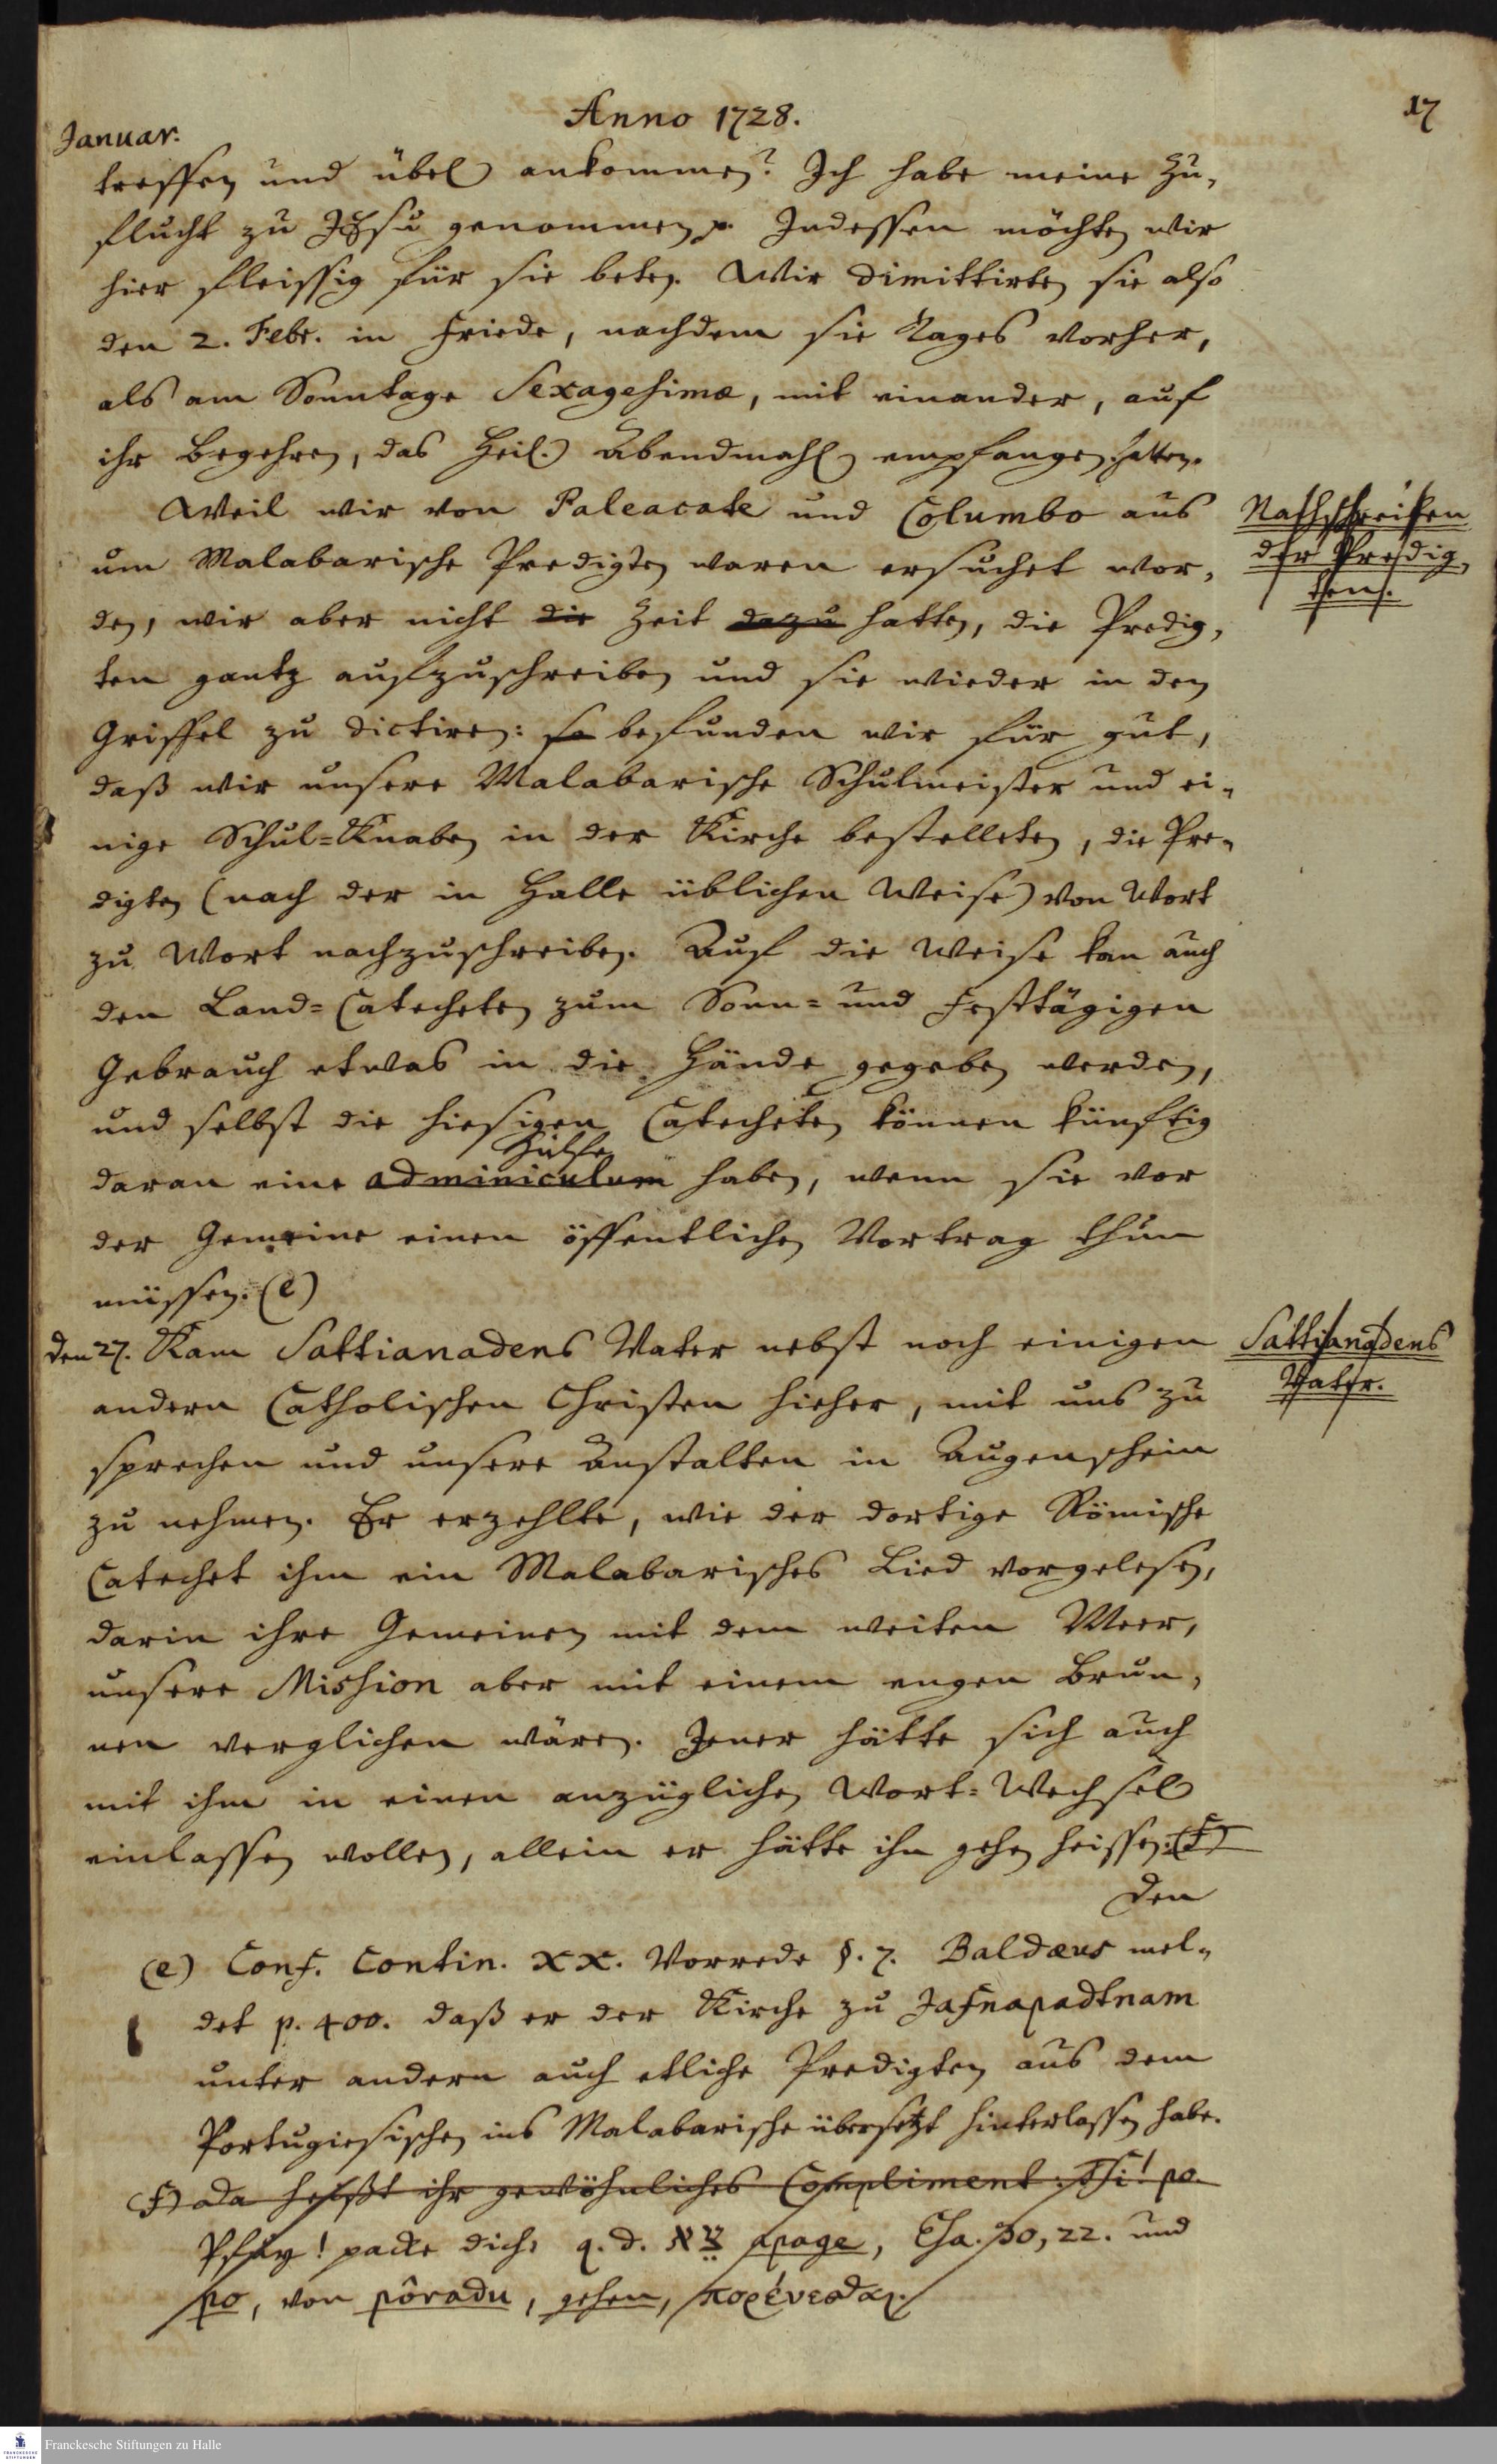 Anno 1728.
17
Januar.
treffen und übel ankommen? Ich habe meine Zu,
flucht zu JEsu genommen p. Indessen möchten wir
hier fleissig für sie beten. Wir dimittirten sie also
den 2. Febr. in Friede, nachdem sie Tages vorher,
als am Sonntage Sexagesimæ, mit einander, auf
ihr Begehren, das Heil. Abendmahl empfangen hatten.
Weil wir von Paleacate und Columbo aus
um Malabarische Predigten waren ersuchet wor,
den, wir aber nicht die Zeit dazu hatten, die Predig,
ten gantz aufzuschreiben und sie wieder in den
Griffel zu dictiren: so befunden wir für gut,
daß wir unsere Malabarische Schulmeister und ei-
nige Schul=Knaben in der Kirche bestelleten, die Pre-
digten (nach der in Halle üblichen Weise) von Wort
zu Wort nachzuschreiben. Auf die Weise kan auch
den Land=Catecheten zum Sonn= und Festtägigen
Gebrauch etwas in die Hände gegeben werden,
und selbst die hiesigen Catecheten können künftig
Hülfe
daran eine adminiculum haben, wenn sie vor
der Gemeine einen öffentlichen Vortrag thun
müssen. (e)
Nachschreiben
der Predig,
ten.
den 27. Kam Sattianadens Vater nebst noch einigen
andern Catholischen Christen hieher, mit uns zu
sprechen und unsere Anstalten in Augenschein
zu nehmen. Er erzehlte, wie der dortige Römische
Catechet ihm ein Malabarisches Lied vorgelesen,
darin ihre Gemeinen mit dem weiten Meer,
unsere Mission aber mit einem engen Brun,
nen verglichen wären. Jener hätte sich auch
mit ihm in einen anzüglichen Wort=Wechsel
einlassen wollen, allein er hätte ihn gehen heissen. (f)
Sattianadens
Vater.
Den
(e) Conf. Contin. XX. Vorrede §. 7. Baldæus mel-
det p. 400. daß er der Kirche zu Jafnapadtnam
unter andern auch etliche Predigten aus dem
Portugiesischen ins Malabarische übersetzt hinterlassen habe.
(f) Da heißt ihr gewöhnliches Compliment: Tschi! po.
Pfuy! packe dich, q. d. צא apage, Esa. 30, 22. und
po, von pôradu, gehen, πορέυεσθαι.